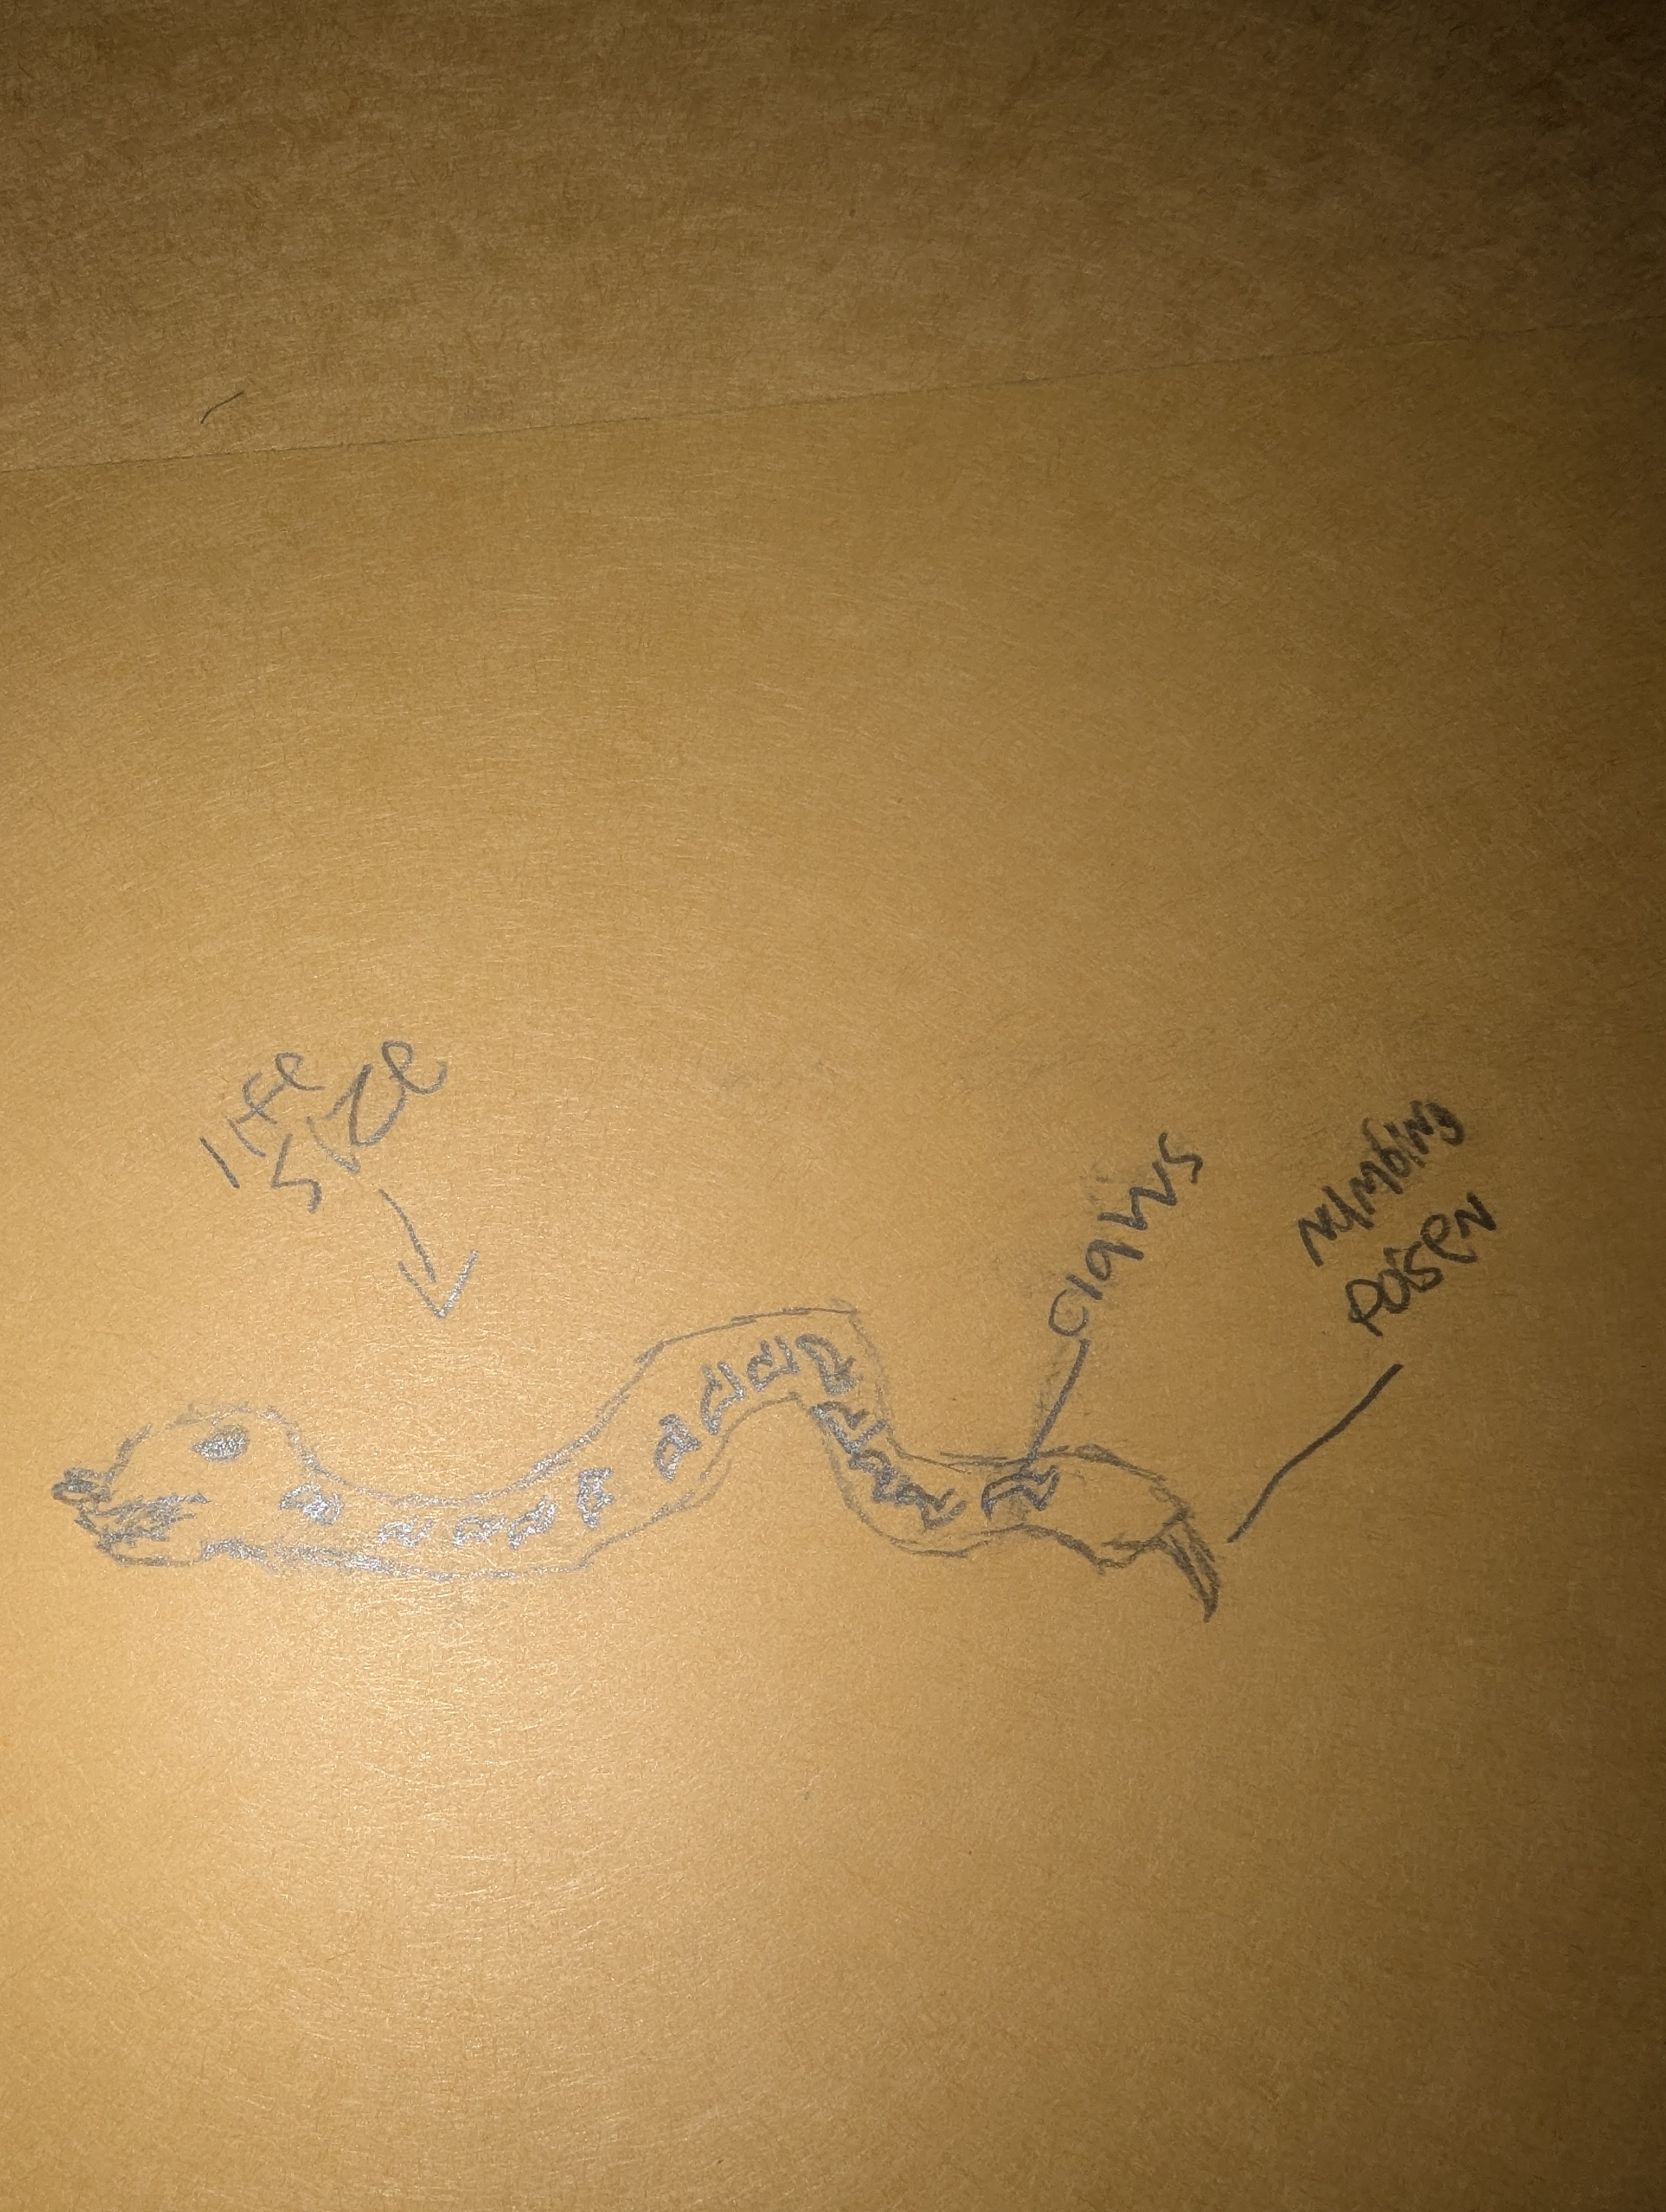 life
size
claws
numbing
poisen